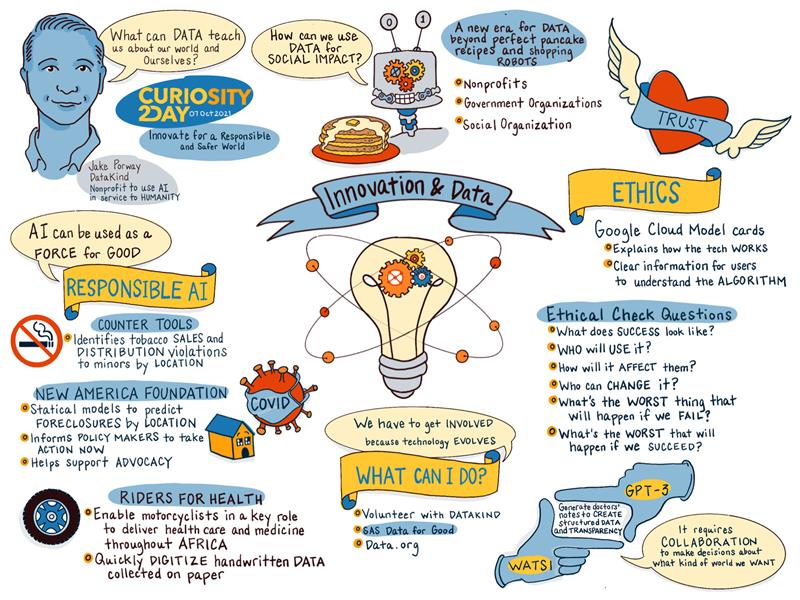 What can DATA teach
us about our world and
Ourselves?
CURIOSITY
2DAY 07 Oct 2021
Innovate for a Responsible
and Safer World
Jake Porway
DataKind
Nonprofit to use AI
in service to HUMANITY
How can we use
DATA for
SOCIAL IMPACT?
0 1
A new era for DATA
beyond perfect pancake
recipes and shopping
ROBOTS
Nonprofits
Government Organizations
Social Organization
TRUST
Innovation & Data
ETHICS
Google Cloud Model cards
Explains how the tech WORKS
Clear information for users
to understand the ALGORITHM
AI can be used as a
FORCE for GOOD
RESPONSIBLE AI
COUNTER TOOLS
Identifies tobacco SALES and
DISTRIBUTION violations
to minors by LOCATION
NEW AMERICA FOUNDATION
Statical models to predict
FORECLOSURES by LOCATION
Informs POLICY MAKERS to take
ACTION NOW
Helps support ADVOCACY
COVID
RIDERS FOR HEALTH
Enable motorcyclists in a key role
to deliver health care and medicine
throughout AFRICA
Quickly DIGITIZE handwritten DATA
collected on paper
Ethical Check Questions
What does SUCCESS look like?
WHO will USE it?
How will it AFFECT them?
Who can CHANGE it?
What's the WORST thing that
will happen if we FAIL?
What's the WORST that will
happen if we SUCCEED?
We have to get INVOLVED
because technology EVOLVES
WHAT CAN I DO?
Volunteer with DATAKIND
SAS Data for Good
Data.org
GPT-3
Generate doctors'
notes to CREATE
structured DATA
and TRANSPARENCY
WATSI
It requires
COLLABORATION
to make decisions about
what kind of world we WANT